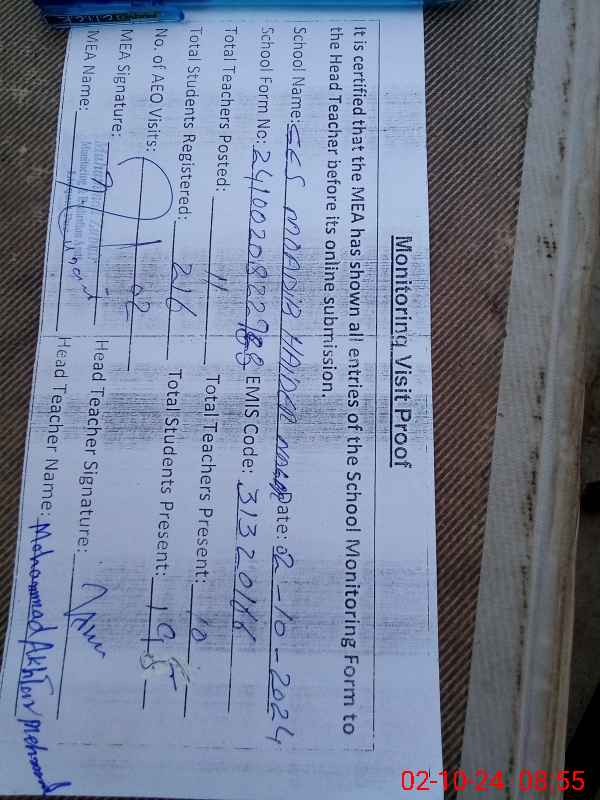 Monitoring Visit Proof
It is certified that the MEA has shown all entries of the School Monitoring Form to
the Head Teacher before its online submission.
School Name: HAIDER Date: 02-10-2024
School Form No: EMIS Code:
Total Teachers Posted: 11 Total Teachers Present: 10
Total Students Registered: 216 Total Students Present:
No. of AEO Visits: 02
MEA Signature: Head Teacher Signature:
MEA Name: Head Teacher Name: Mohammad Akhtar
02-10-24 08:55